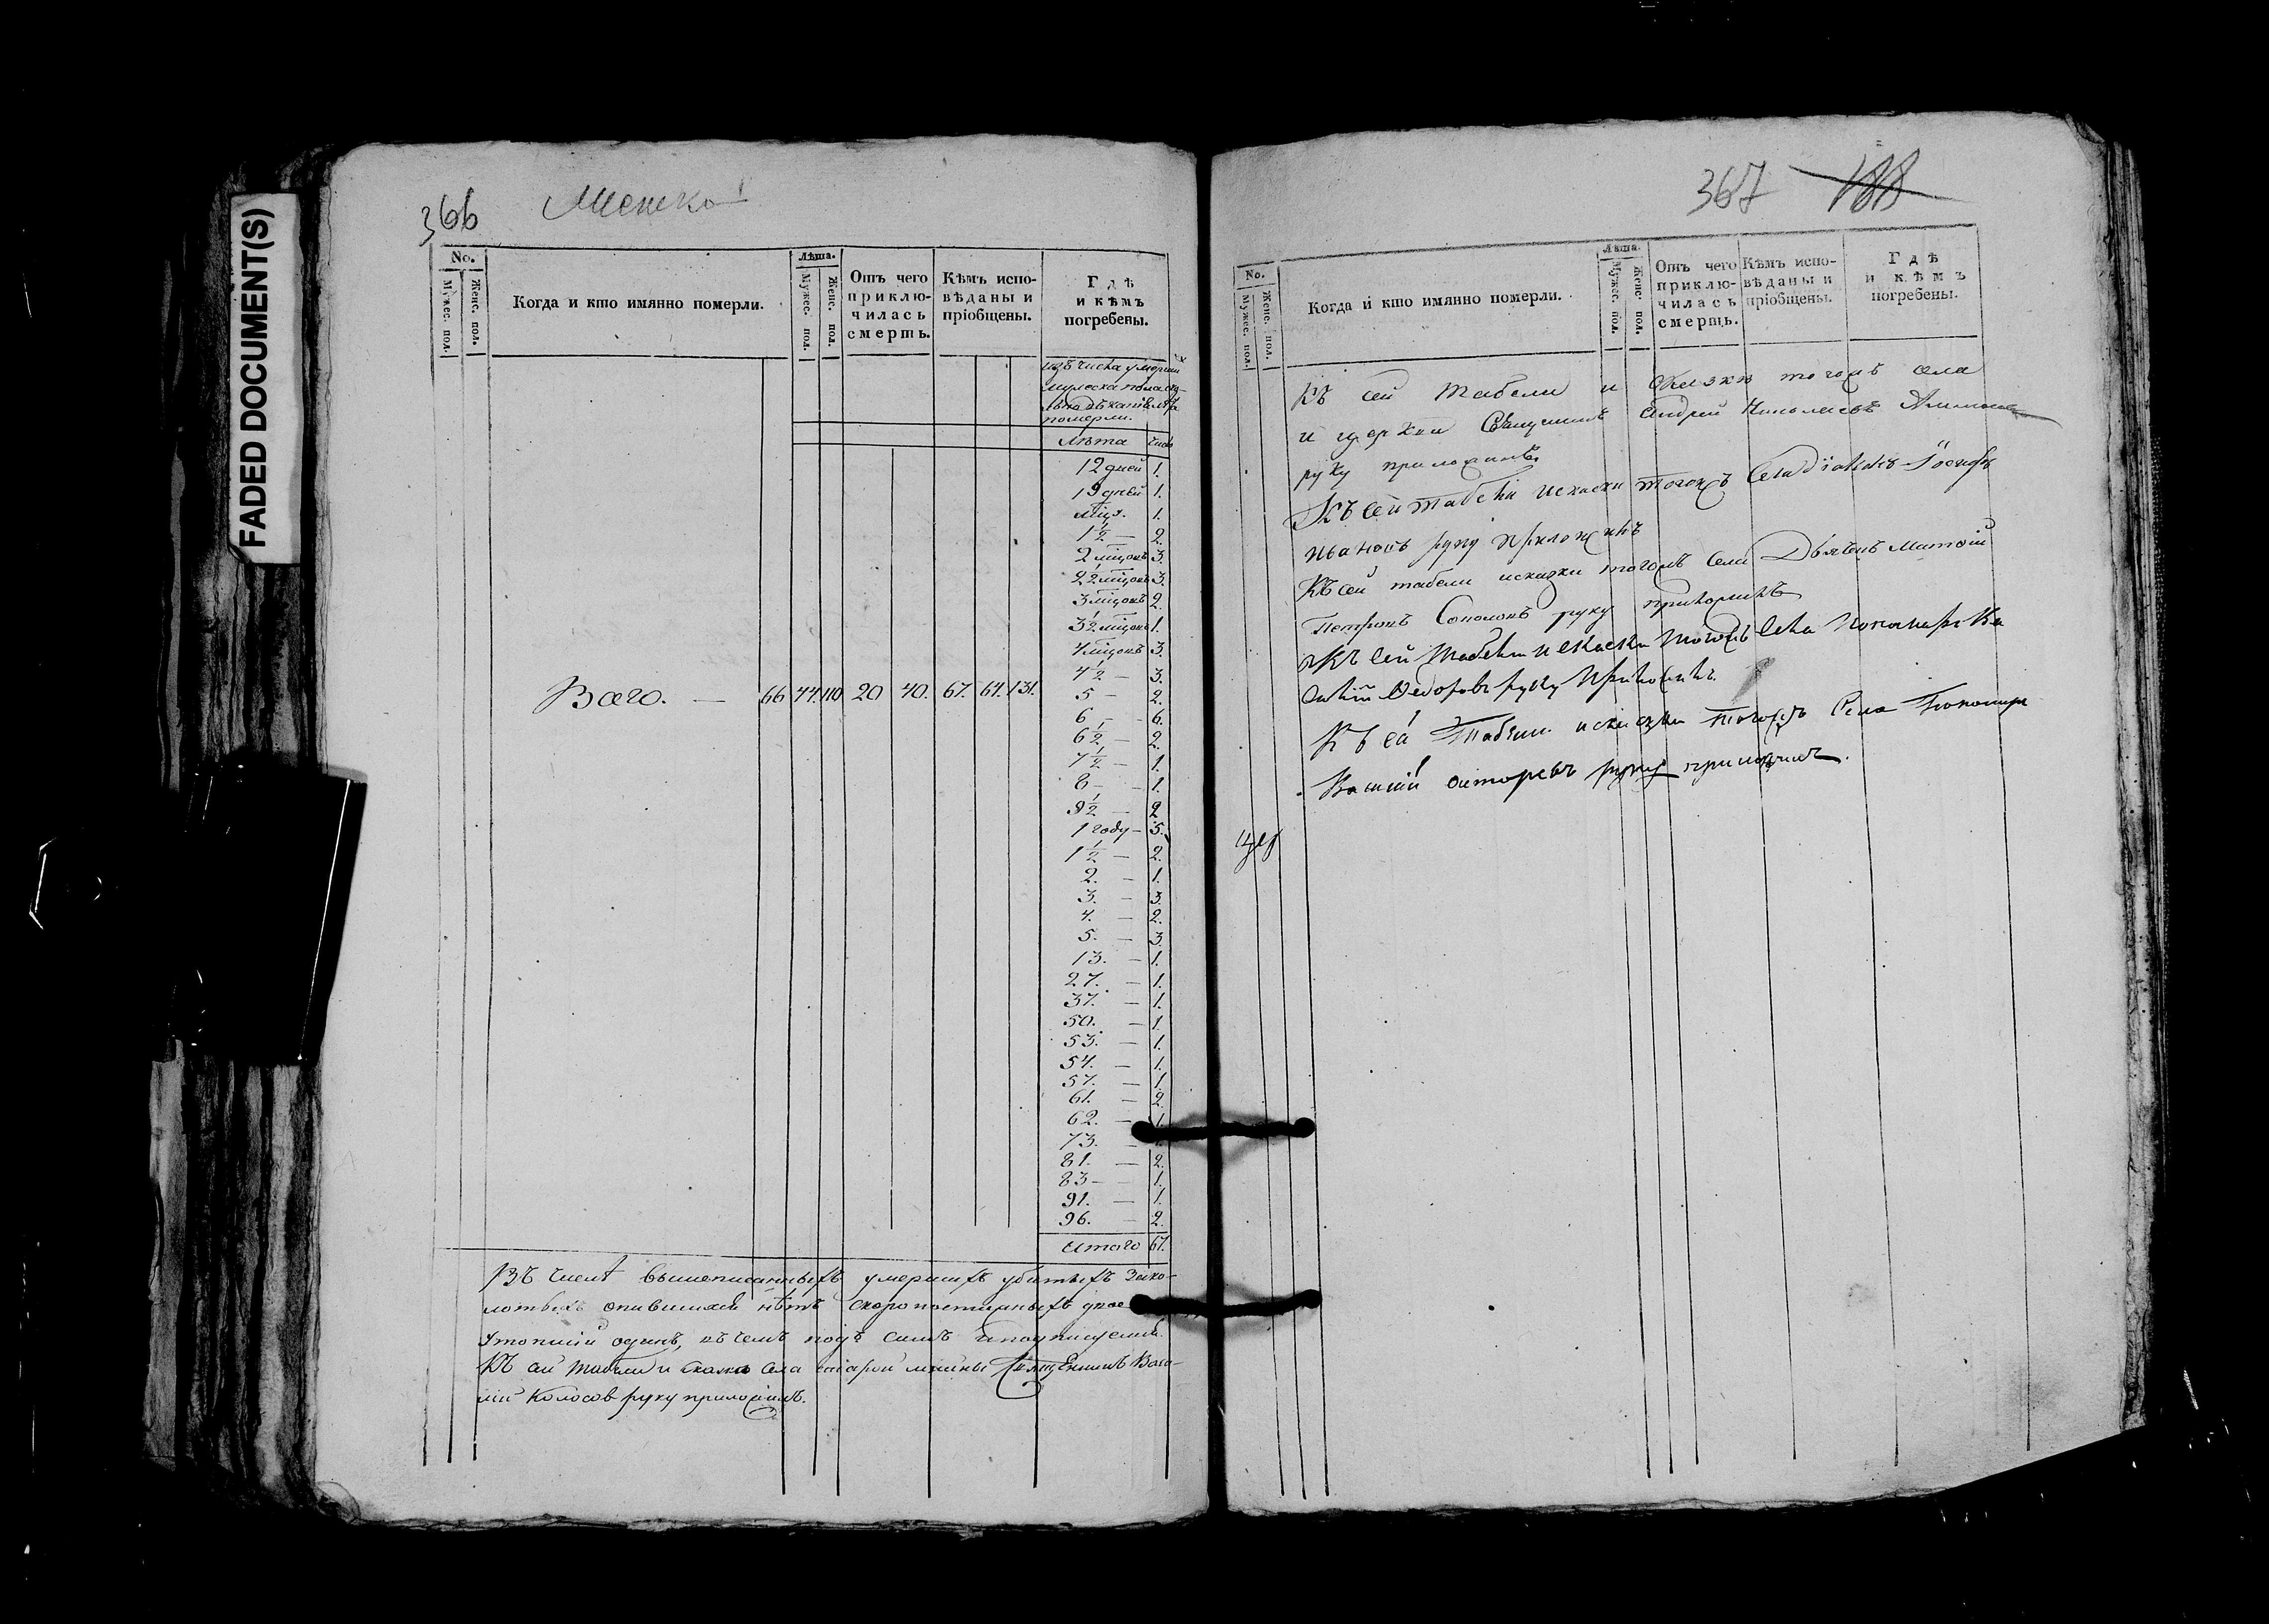 FADED DOCUMENT(S)
366
No.
Мужес. пол.
Женс. пол.
Когда и кто имянно померли.
Лѣта.
Мужес. пол.
Женс. пол.
Отъ чего приклю-
чилась
смерть.
Кѣмъ испо-
вѣданы и
пріобщены.
Гдѣ
и кѣмъ
погребены.
изъ числа умерши
мужеска пола ско-
померли.
Лѣта
12 дней 1.
19 дней 1.
1.
1½ — 2.
2 3.
2½ 3.
3 2.
3½ 1.
4 3.
4½ — 3.
5 — 2.
6 — 6.
6½ — 2.
7½ — 1.
8 — 1.
9½ — 2
1 году — 5.
1½ — 2.
2. — 1.
3. — 3.
4. — 2.
5. — 3.
13. — 1.
27. — 1.
37. — 1.
50. — 1.
53. — 1.
54. — 1.
57. — 1.
61. — 2.
62. —
73. —
81. — 2.
83 — 1.
91. — 1.
96. — 2.
Итого 67.
Всего. — 66 44. 110 20 40. 67. 64. 131.
Въ числѣ вышеписанныхъ умершихъ убитыхъ Зако-
лотыхъ опившихся нѣтъ скоропостижныхъ двое
утопшій одинъ, въ чемъ подъ симъ и подписуемся.
Къ сей табели и скаски села старой Священникъ Васи-
лій Колосов руку приложилъ.
367 188
No.
Мужес. пол.
Женс. пол.
Когда и кто имянно померли.
Лѣта.
Мужес. пол.
Женс. пол.
Отъ чего
приклю-
чилась
смерть.
Кѣмъ испо-
вѣданы и
пріобщены.
Гдѣ
и кѣмъ
погребены.
Къ сей табели и скаски тогожъ села
и церкви Священникъ Андрей Николаевъ
руку приложилъ
Къ сей табели искаски тогожъ Села діаконъ Іосифъ
Ивановъ руку приложилъ
Къ сей табели искаски тогожъ села Дьячекъ Матвій
Петровъ Соколовъ руку приложилъ
Къ сей табели искаски тогожъ села пономарь Ва
силій Федоровъ руку приложилъ
Къ сей табели искаски тогожъ Села Пономарь
Василій руку приложилъ.